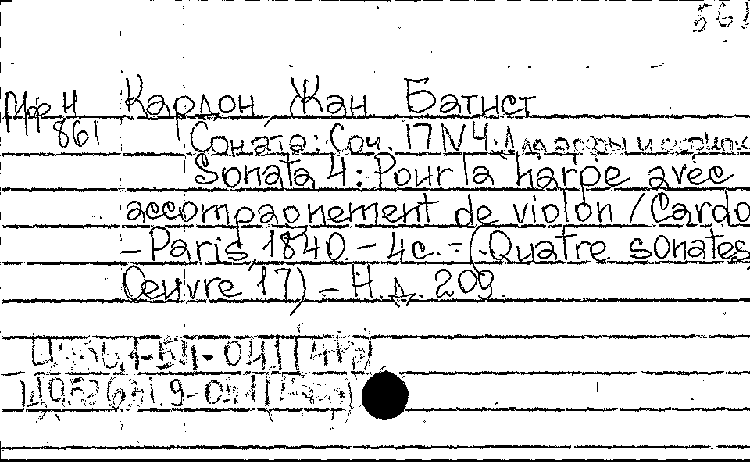 561
Мф Н Кардон Жан Батист
861 Соната: Соч. 17 N 4. Для арфы и скрипк
Sonata 4: Pour la harpe avec
accompagnement de violon / Cardo
- Paris, 1840 - 4c. - (Quatre sonates
Oeuvre 17) - Н.д. 209.